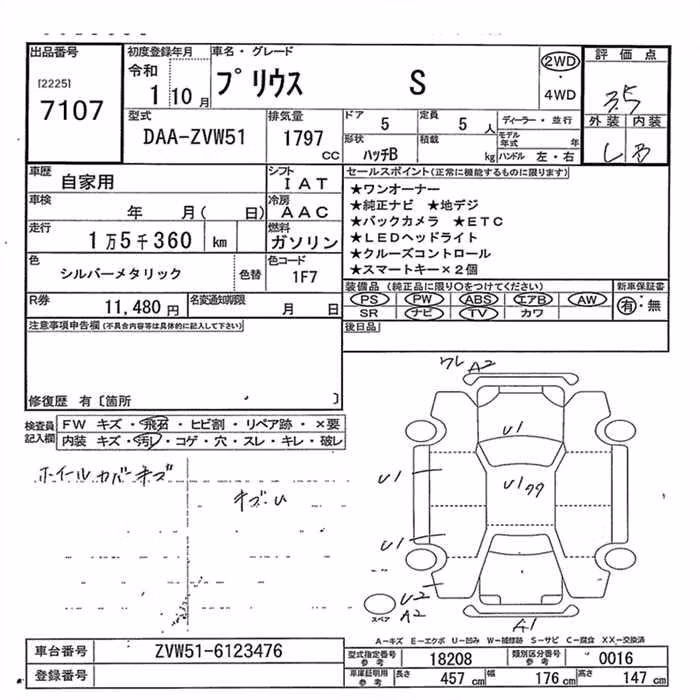 出品番号 初度登録年月 車名・グレード 評価点
[2225] 令和 プリウス S 2WD ・ 4WD 3.5
7107 1 10月 外装 内装
型式 排気量 ドア 5 定員 5人 ディーラー・並行
DAA-ZVW51 1797 CC 形状 ハッチB 積載 kg モデル年式 年 ハンドル 左・右 B
車歴 自家用 シフト IAT セールスポイント(正常に機能するものに限ります)
車検 年 月( 日) 冷房 AAC ★ワンオーナー
★純正ナビ ★地デジ
走行 1万5千360 km 燃料 ガソリン ★バックカメラ ★ETC
★LEDヘッドライト
色 シルバーメタリック 色替 色コード 1F7 ★クルーズコントロール
★スマートキー×2個
R券 11,480円 名変通知期限 月 日 装備品(純正品に限り○をつけてください) 新車保証書
PS PW ABS エアB AW 有・無
SR ナビ TV カワ
注意事項申告欄(不具合内容等は具体的に記入して下さい) 後日品
修復歴 有〔箇所 〕
検査員記入欄 FW キズ・飛石・ヒビ割・リペア跡・×要
内装 キズ・汚レ・コゲ・穴・スレ・キレ・破レ
ホイールカバーキズ
キズ・U
ワレ A2
U1
U1 U1
U1
U2
A2 A1
スペア
A-キズ E-エクボ U-凹み W-補修跡 S-サビ C-腐食 XX-交換済
車台番号 ZVW51-6123476 型式指定番号 参考 18208 類別区分番号 参考 0016
登録番号 車庫証明用 参考 長さ 457cm 幅 176cm 高さ 147cm